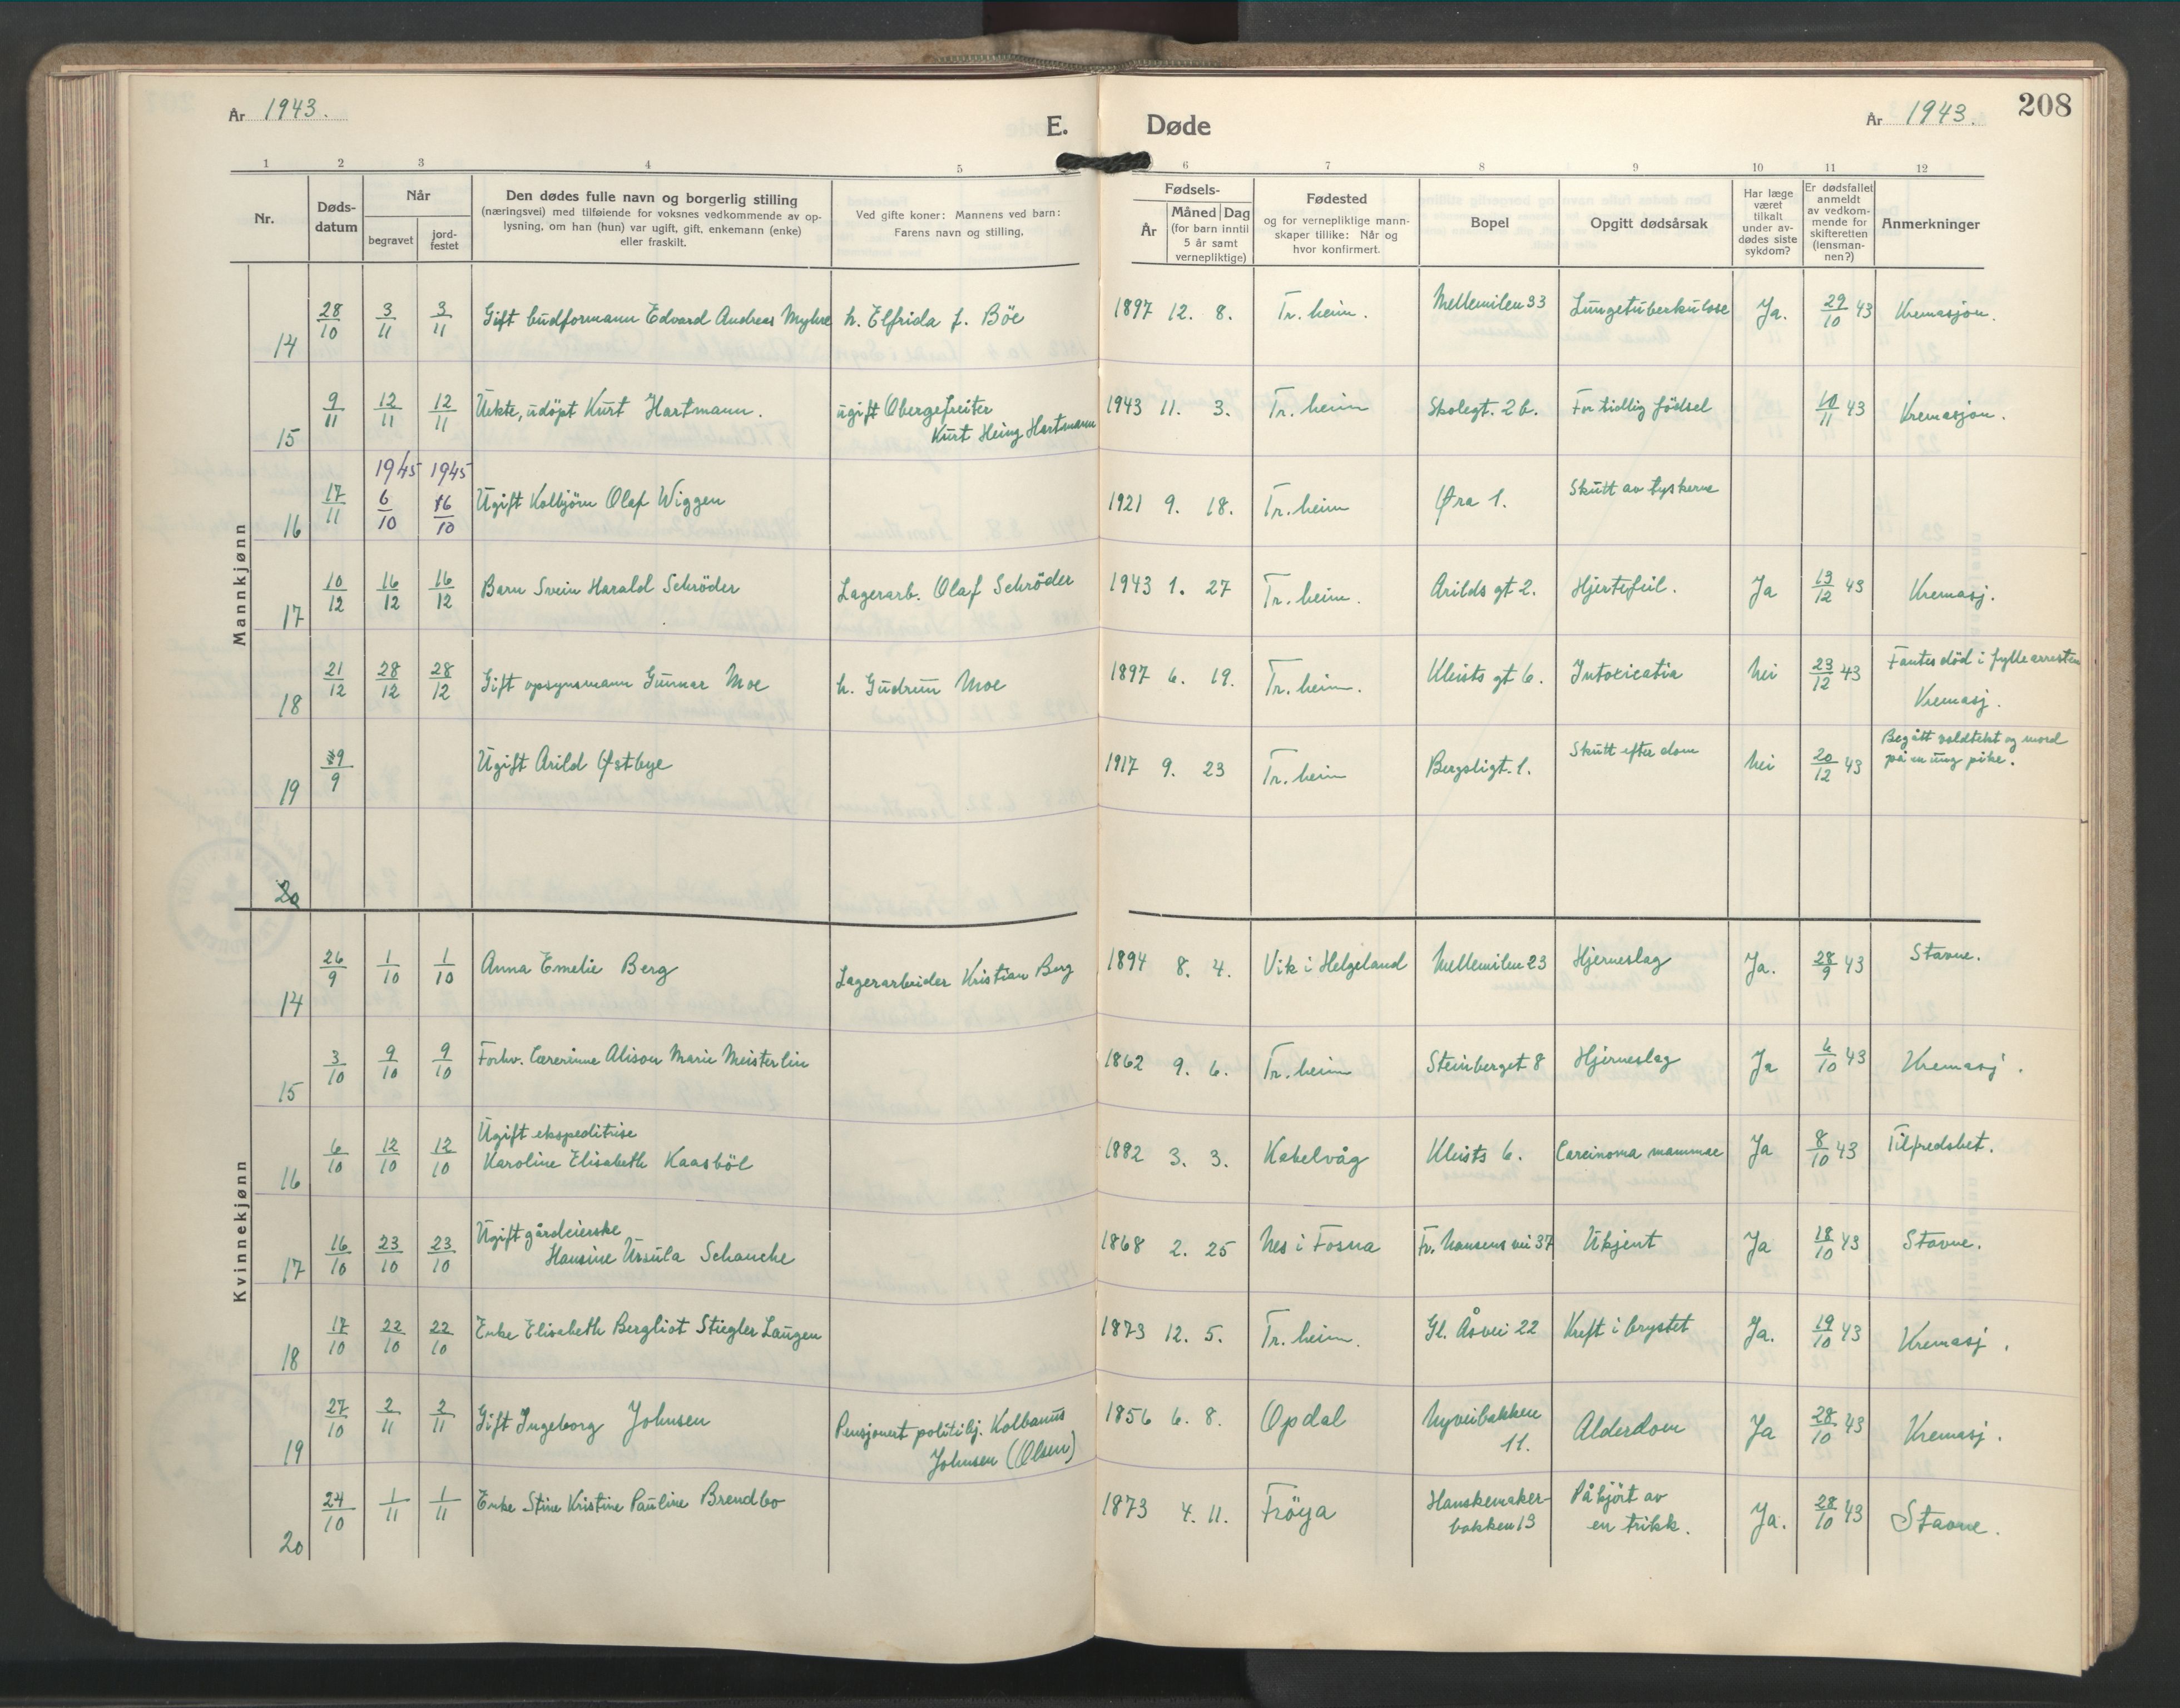 År 1943.
E. Døde
År 1943.
208
1 2 3 4 5 6 7 8 9 10 11 12
Nr.
Døds-
datum
Når
begravet
jord-
festet
Den dødes fulle navn og borgerlig stilling
(næringsvei) med tilføiende for voksnes vedkommende av op-
lysning, om han (hun) var ugift, gift, enkemann (enke)
eller fraskilt.
Ved gifte koner: Mannens ved barn:
Farens navn og stilling.
Fødsels-
År
Måned Dag
(for barn inntil
5 år samt
vernepliktige)
Fødested
og for vernepliktige mann-
skaper tillike: Når og
hvor konfirmert.
Bopel
Opgitt dødsårsak
Har læge
været
tilkalt
under av-
dødes siste
sykdom?
Er dødsfallet
anmeldt
av vedkom-
mende for
skifteretten
(lensman-
nen?)
Anmerkninger
Mannkjønn
14 28/10 3/11 3/11 Gift budformann Edvard Andreas Myhre h. Elfrida f. Böe 1897 12. 8. Tr. heim. Mellemilen 33 Lungetuberkulose Ja. 29/10 43 Kremasjon.
15 9/11 12/11 12/11 Uekte, udöpt Kurt Hartmann. ugift Obergefreiter
Kurt Heinz Hartmann 1943 11. 3. Tr. heim Skolegt. 2b. For tidlig födsel 10/11 43 Kremasjon.
1945 1945
16 17/11 6/10 16/10 Ugift Kolbjörn Olaf Wiggen 1921 9. 18. Tr. heim Øra 1. Skutt av tyskerne
17 10/12 16/12 16/12 Barn Svein Harald Schröder Lagerarb. Olaf Schröder 1943 1. 27 Tr. heim. Arilds gt 2. Hjertefeil. Ja 13/12 43 Kremasj.
18 21/12 28/12 28/12 Gift opsynsmann Gunnar Moe h. Gudrun Moe 1897 6. 19. Tr. heim. Kleists gt 6. Intoxicatia Nei 23/12 43 Fantes död i fyllearresten
Kremasj.
19 9/9 Ugift Arild Østbye 1917 9. 23 Tr. heim Bergsligt. 1. Skutt efter dom Nei 20/12 43 Begått voldtekt og mord
på en ung pike.
20
Kvinnekjønn
14 26/9 1/10 1/10 Anna Emelie Berg Lagerarbeider Kristian Berg 1894 8. 4. Vik i Helgeland Mellemilen 23 Hjerneslag Ja. 28/9 43 Stavne.
15 3/10 9/10 9/10 Forhv. Lærerinne Alison Marie Meisterlin 1862 9. 6. Tr. heim Steinberget 8 Hjerneslag Ja 6/10 43 Kremasj.
16 6/10 12/10 12/10 Ugift ekspeditrise
Karoline Elisabeth Kaasböl 1882 3. 3. Kabelvåg Kleists 6. Carcinoma mammae Ja 8/10 43 Tilfredshet.
17 16/10 23/10 23/10 Ugift gårdeierske
Hansine Ursula Schancke 1868 2. 25 Nes i Fosna Fr. Nansens vei 37 Ukjent Ja 18/10 43 Stavne.
18 17/10 22/10 22/10 Enke Elisabeth Bergliot Stiegler Langen 1873 12. 5. Tr. heim. Gl. Åsvei 22 Kreft i brystet Ja. 19/10 43 Kremasj.
19 27/10 2/11 2/11 Gift Ingeborg Johnsen Pensjonert politibj. Kolbanus
Johnsen (Olsen) 1856 6. 8. Opdal Nyveibakken
11. Alderdom Ja 28/10 43 Kremasj.
20 24/10 1/11 1/11 Enke Stine Kristine Pauline Brendbo 1873 4. 11. Fröya Hanskemaker-
bakken 13 Påkjört av
en trikk. Ja. 28/10 43 Stavne.